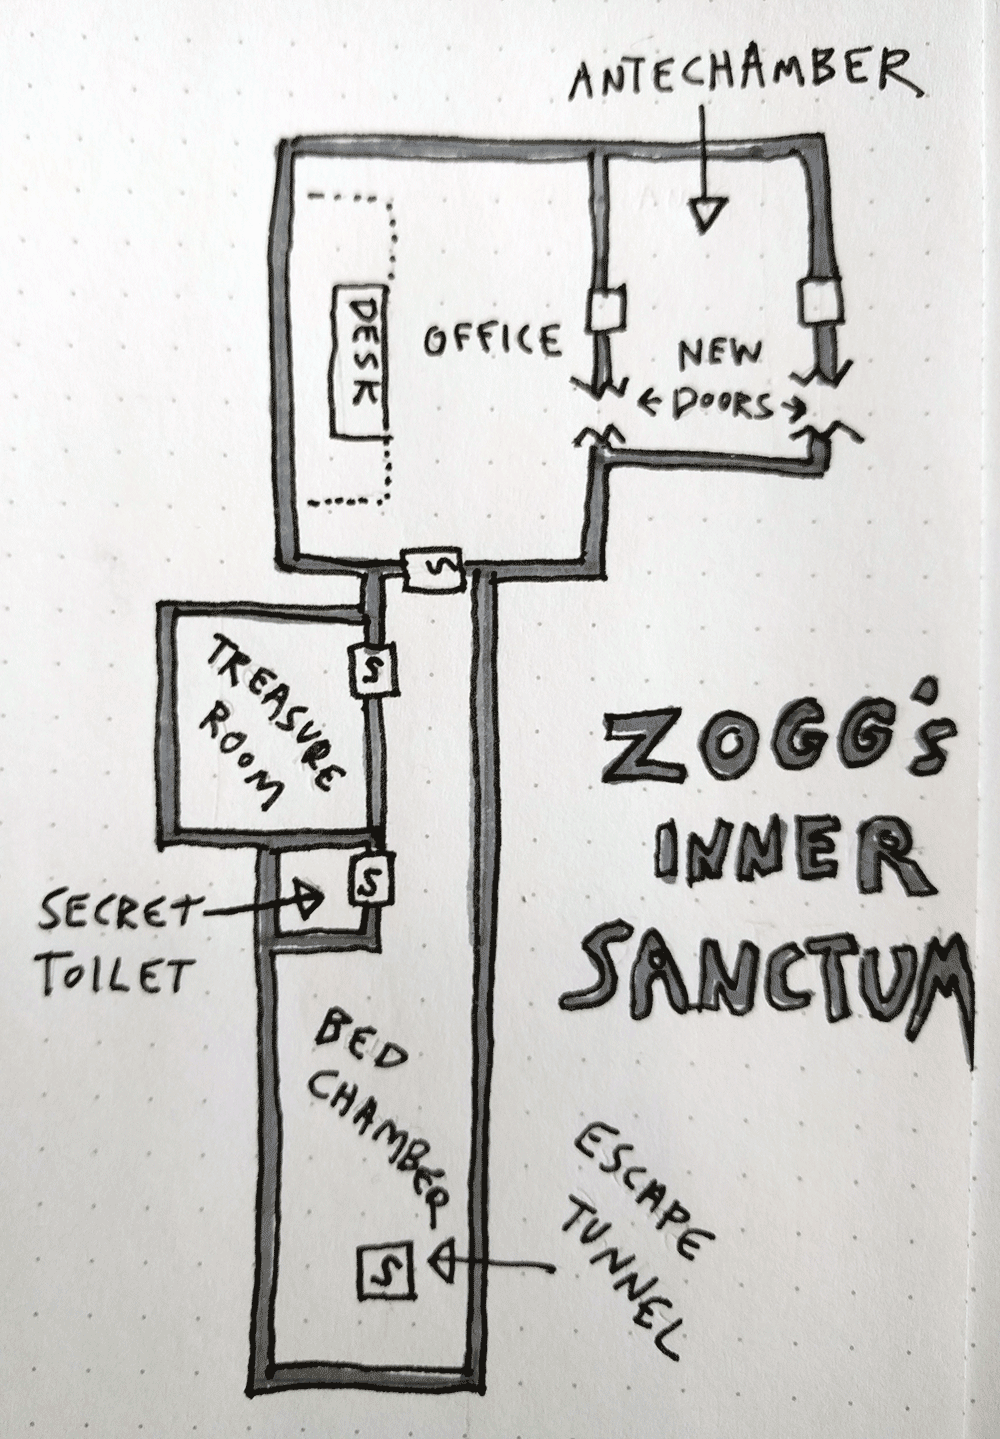 ANTECHAMBER
DESK
OFFICE
NEW
← DOORS →
S
TREASURE
ROOM
S
ZOGG'S
INNER
SANCTUM
SECRET
TOILET
S
BED
CHAMBER
ESCAPE
TUNNEL
S